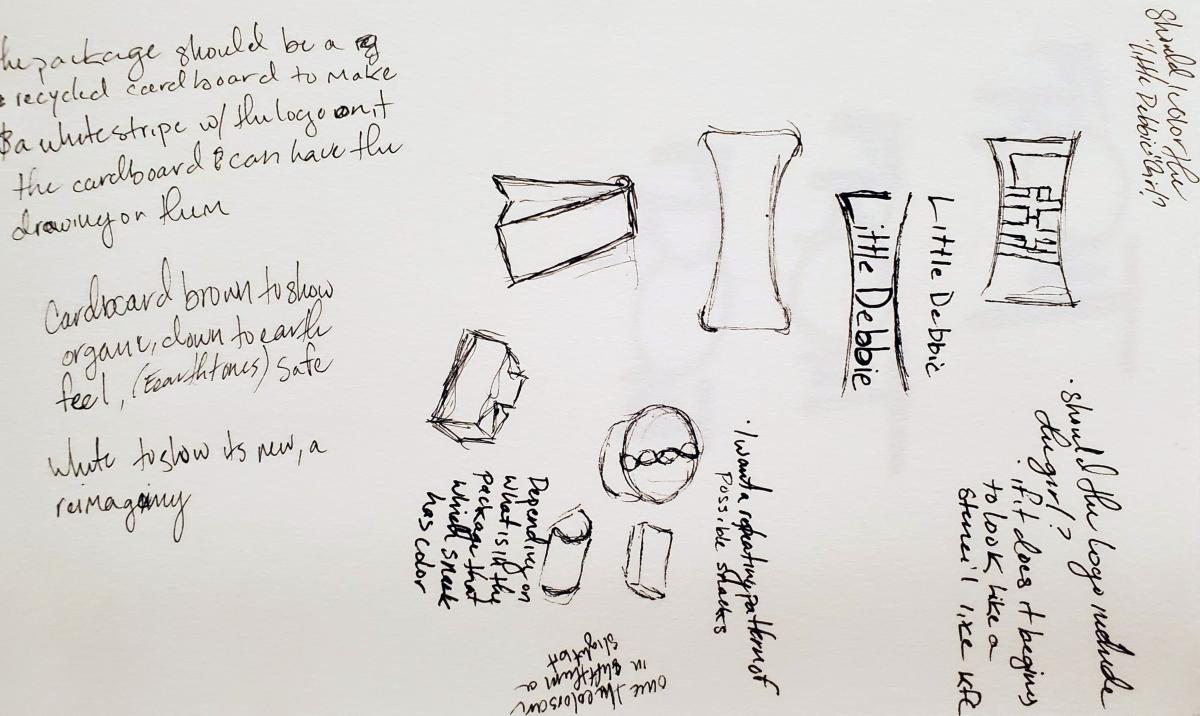 the package should be a
recycled cardboard to make
a white stripe w/ the logo on it
the cardboard & can have the
drawing on them
Cardboard brown to show
organic, down to earth
feel, (Eearthtones) safe
White to show its new, a
reimaginy
Should I color the
"Little Debbie" Girl?
Little Debbie
Little Debbie
Little
· Should the logo include
the girl?
if it does it begins
to look like a
stencil like KFC
· I want a repeating pattern of
possible snacks
Depending on
what is in the
package that
which snack
has color
once the colors are
in shift them a
slight bit